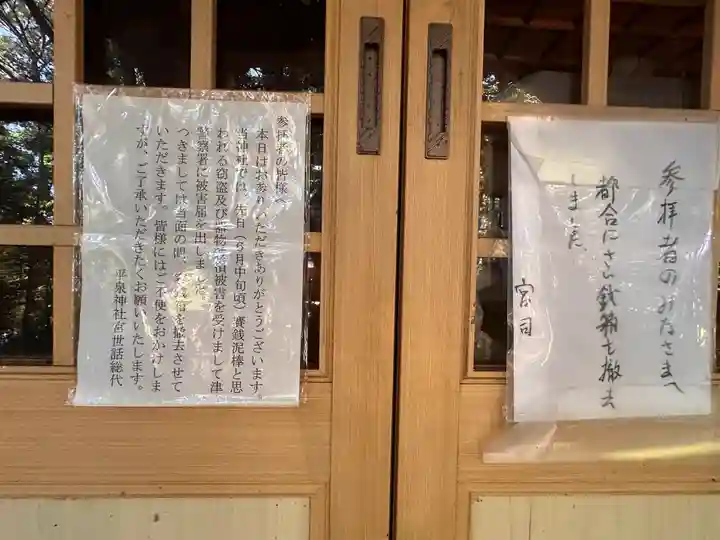 参拝者の皆様へ
本日はお参りいただきありがとうございます。
当神社では、先日(6月中旬頃)賽銭泥棒と思
われる窃盗及び器物破損被害を受けまして津
警察署に被害届を出しました。
つきましては当面の間、賽銭箱を撤去させて
いただきます。皆様にはご不便をおかけしま
すが、ご了承いただきたくお願いいたします。
平泉神社宮世話総代
参拝者のみなさまへ
都合にさい銭箱を撤去
しました
宮司